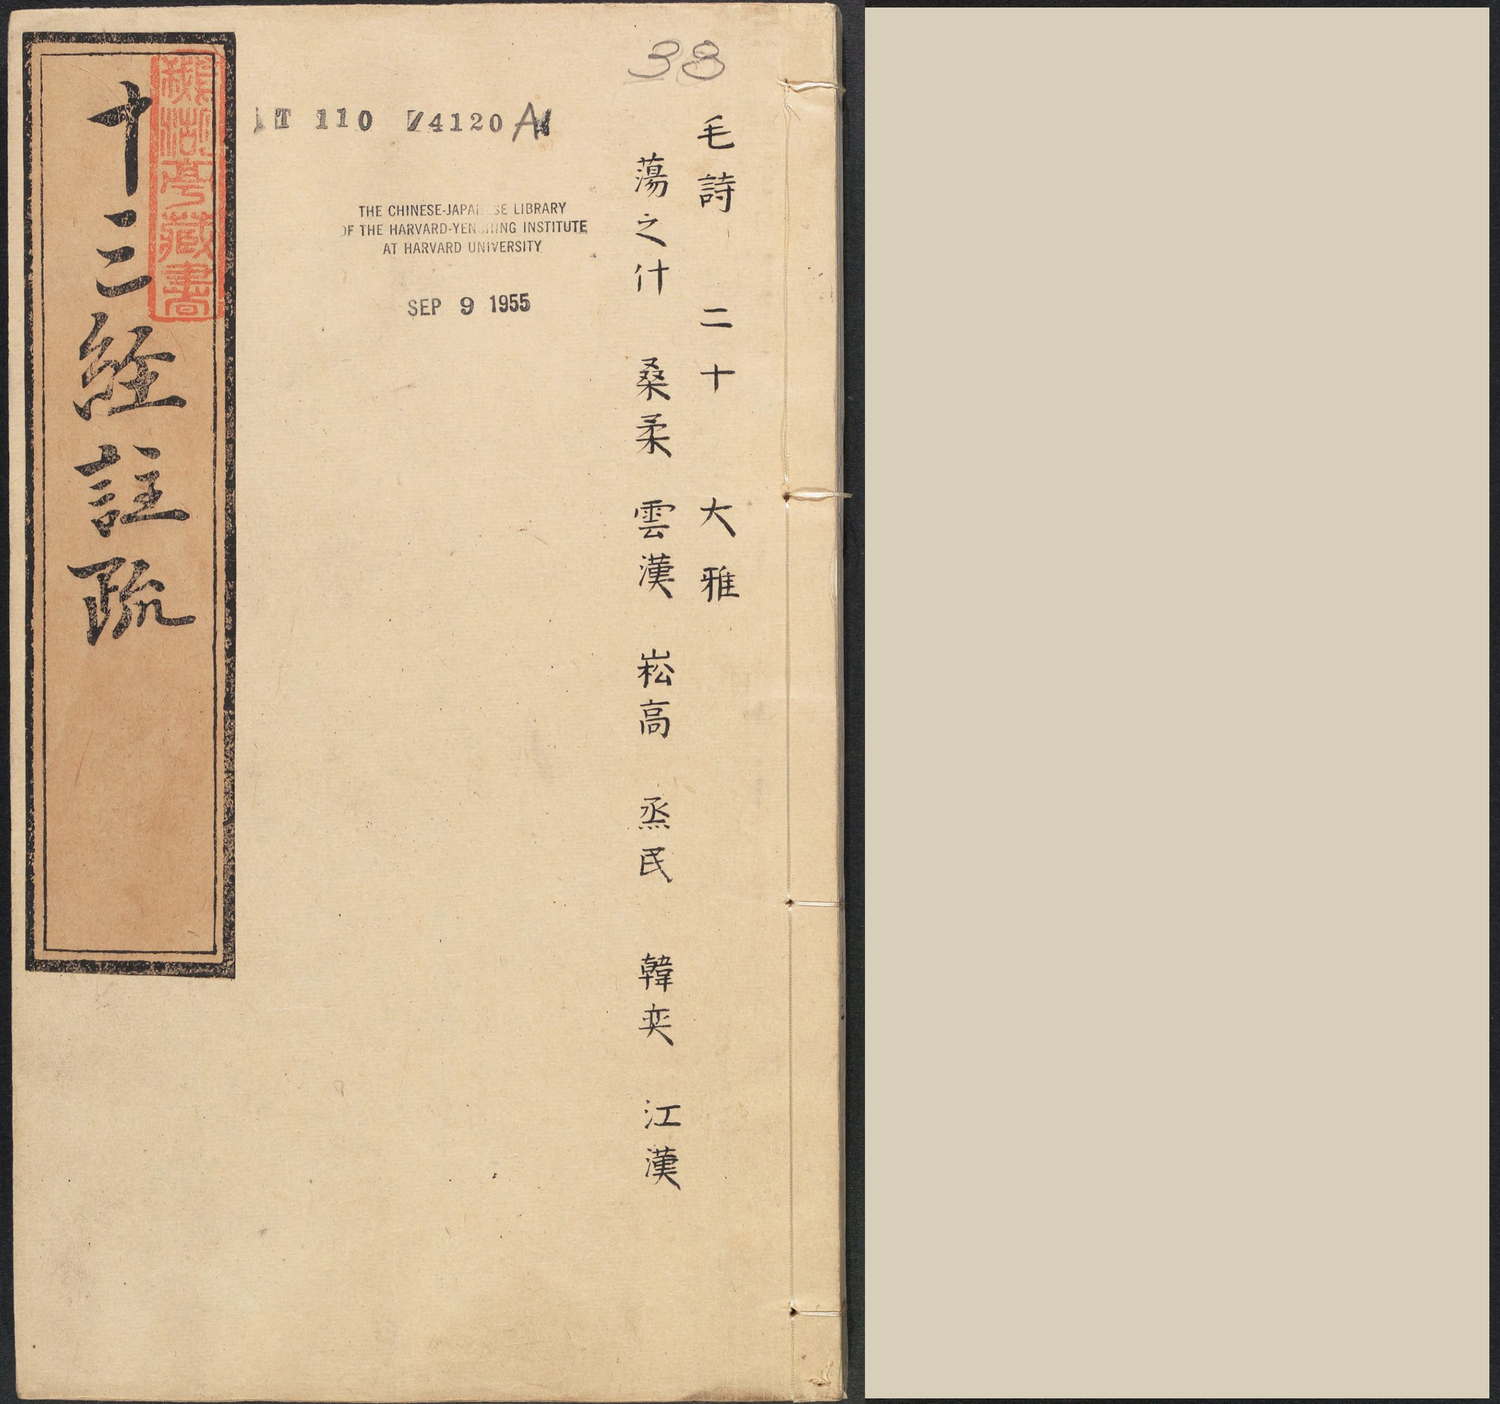 38
毛詩 二十 大雅
蕩之什 桑柔 雲漢 崧高 烝民 韓奕 江漢
T 110 /4120 A
THE CHINESE-JAPANESE LIBRARY
OF THE HARVARD-YENCHING INSTITUTE
AT HARVARD UNIVERSITY
SEP 9 1955
十三經註疏
亭藏書